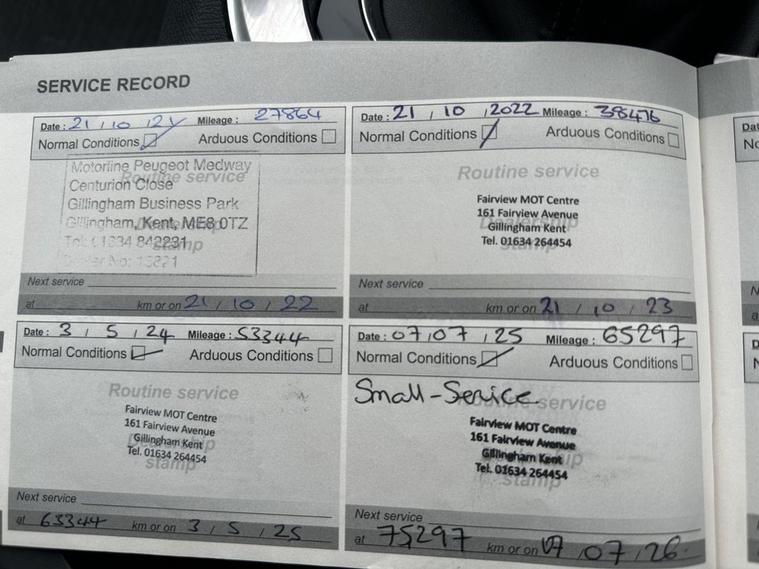 SERVICE RECORD
Date : 21 / 10 / 21 Mileage : 27864
Normal Conditions Arduous Conditions
Routine service
Motorline Peugeot Medway
Centurion Close
Gillingham Business Park
Gillingham, Kent, ME8 0TZ
Tel: 01634 842231
Dealership
stamp
Next service
at km or on 21 / 10 / 22
Date : 21 / 10 / 2022 Mileage : 38476
Normal Conditions Arduous Conditions
Routine service
Fairview MOT Centre
161 Fairview Avenue
Gillingham Kent
Tel. 01634 264454
Dealership
stamp
Next service
at km or on 21 / 10 / 23
Date : 3 / 5 / 24 Mileage : 53344
Normal Conditions Arduous Conditions
Routine service
Fairview MOT Centre
161 Fairview Avenue
Gillingham Kent
Tel. 01634 264454
Dealership
stamp
Next service
at 63344 km or on 3 / 5 / 25
Date : 07 / 07 / 25 Mileage : 65297
Normal Conditions Arduous Conditions
Small-Service
Routine service
Fairview MOT Centre
161 Fairview Avenue
Gillingham Kent
Tel. 01634 264454
Dealership
stamp
Next service
at 75297 km or on 07 / 07 / 26